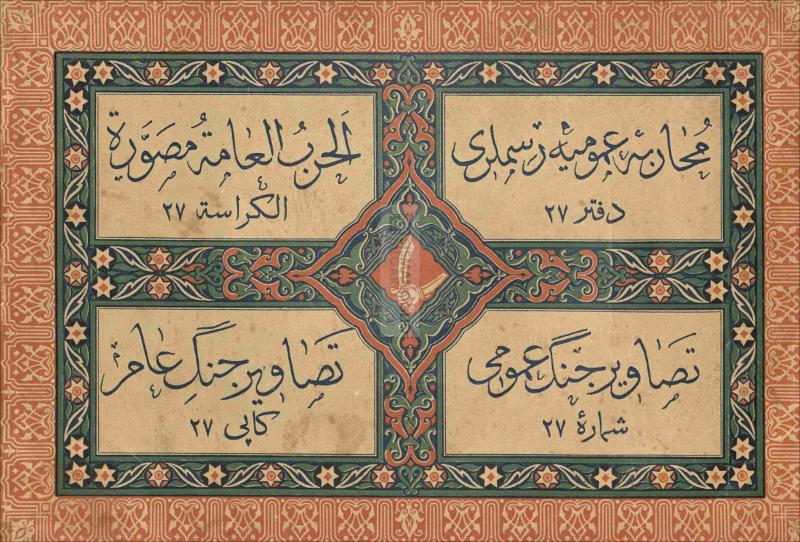 محاربه عمومیه رسملری
دفتر ٢٧
الَحربُ العامةُ مُصَوَّرة
الكراسة ٢٧
تصاویر جنگ عمومی
شمارهٔ ٢٧
تصاویر جنگِ عام
کاپی ٢٧